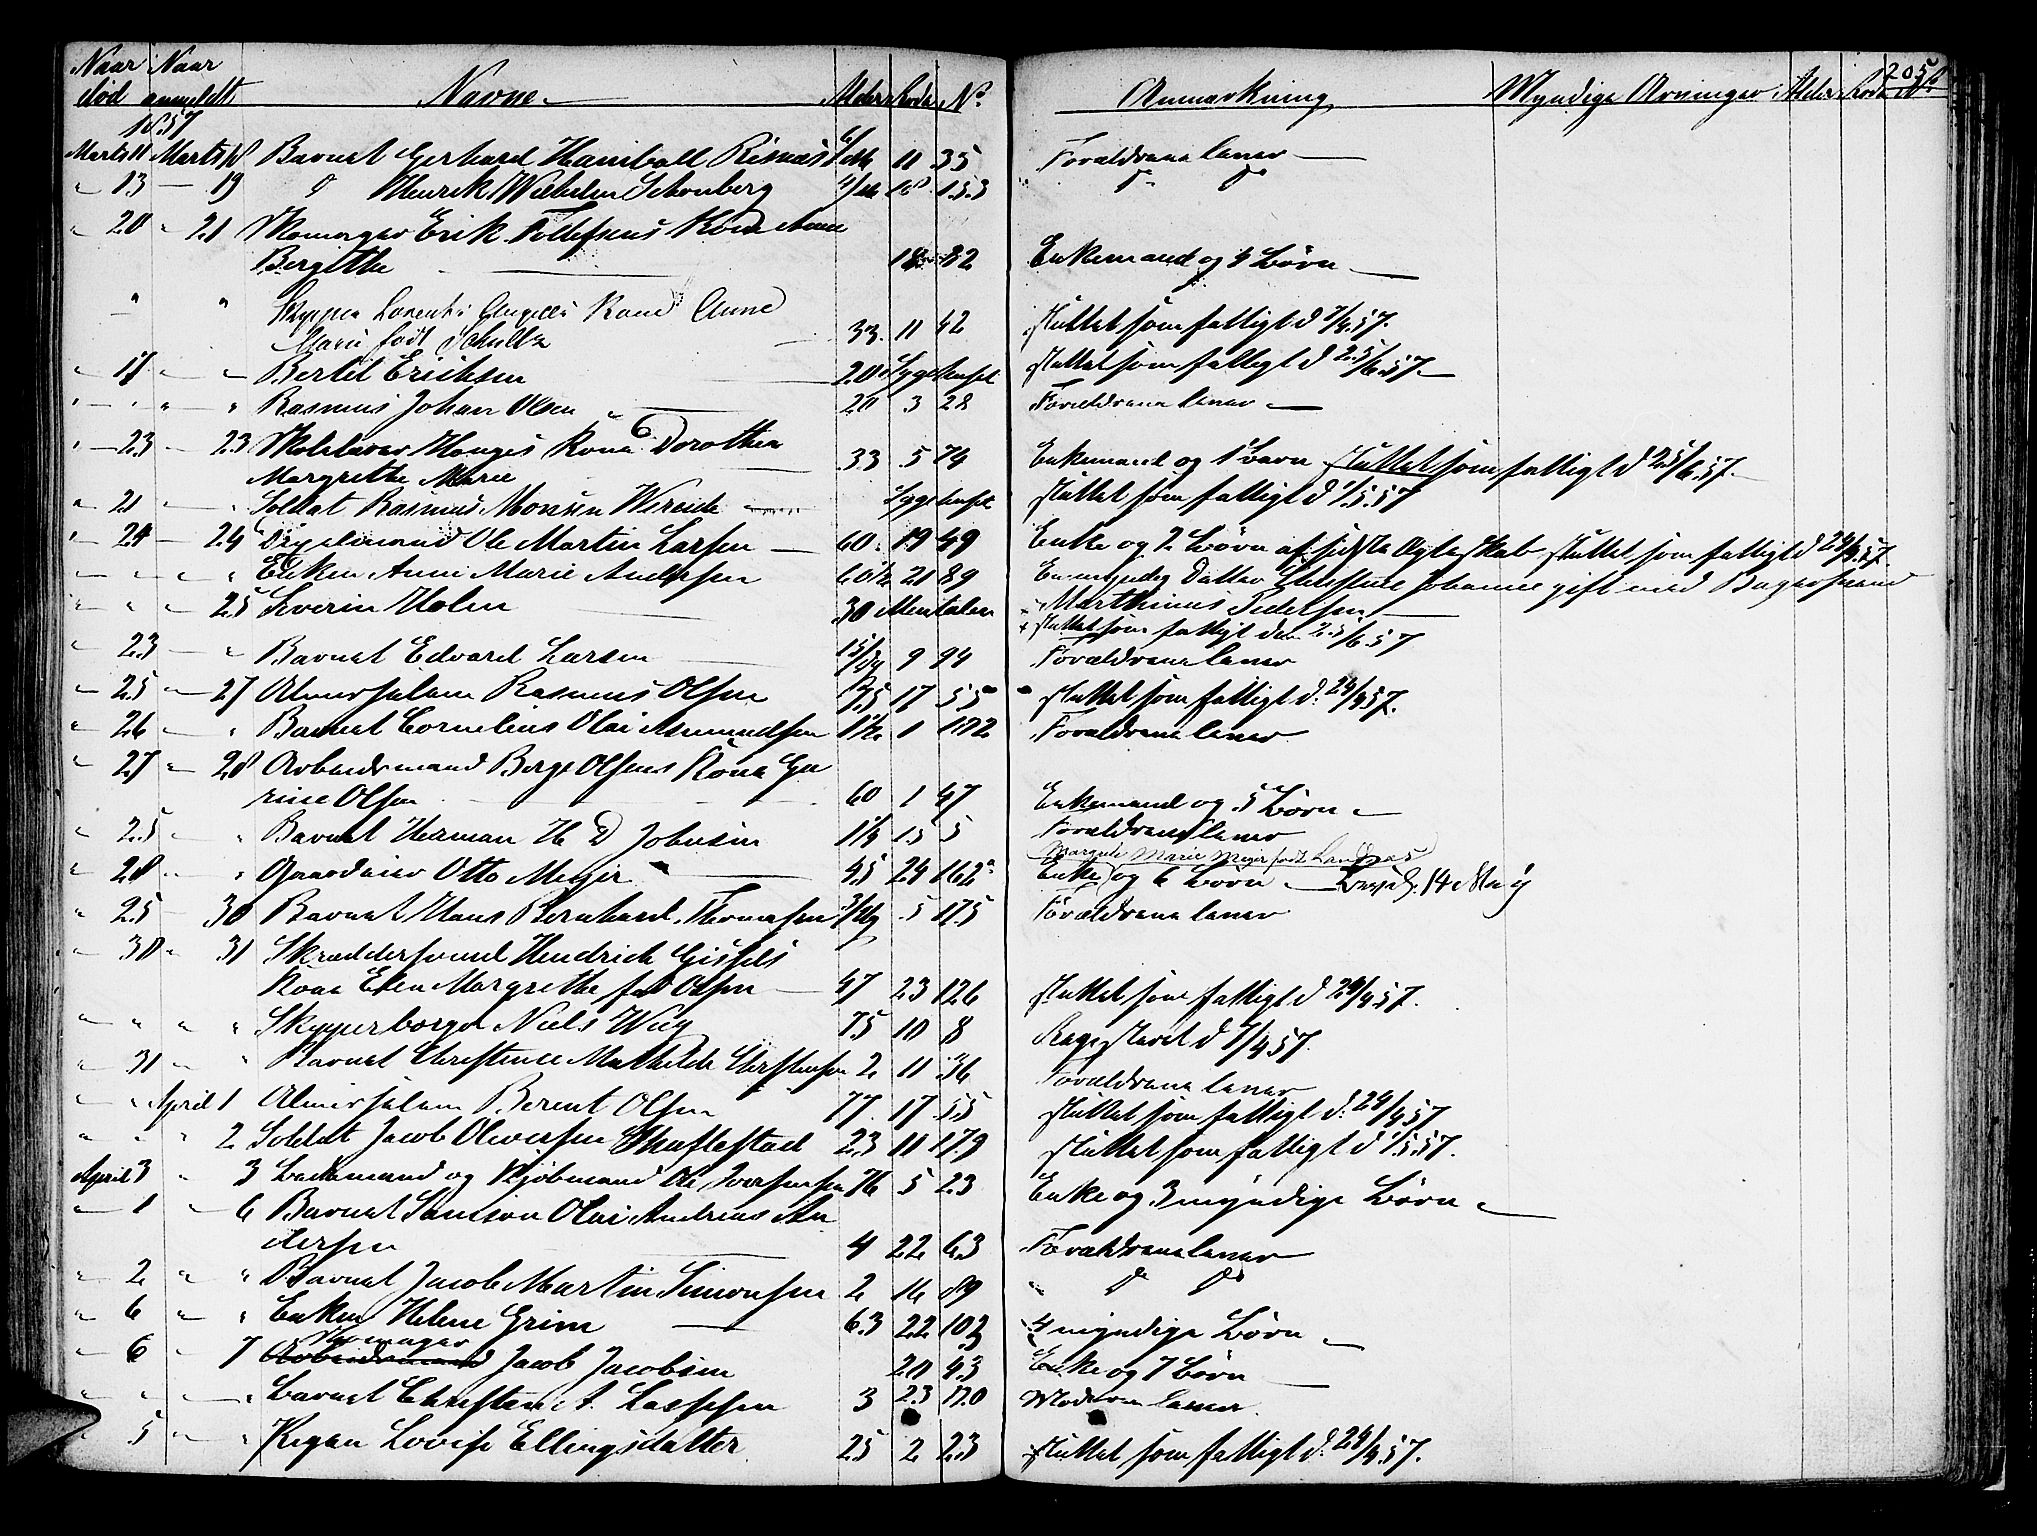 205
Naar død Naar anmeldt Navne Alder Rode No Anmærkning Myndige Arvinger Alder Rode No
1857
Marts 11 Marts 18 Barnet Gerhard Haniball Risnæs 11 35 Forældrene lever
" 13 — 19 do Henrik Wilhelm Schønberg 153 do do
" 20 " 21 Skomager Erik Tollefsens Kone Anne
Bergithe 18 82 Enkemand og 4 Børn
" " Skipper Kone Anne
Marie født Schultz 33 11 42 sluttet som fattigt d 7/4.57.
" 17 — " Bertil Eriksen 20 Sygehuset sluttet som fattigt d 25/6.57.
" — " " Rasmus Johan Olsen 20 3 28 Forældrene lever
" 23 — 23 Skolelærer Kone Dorothea
Margrethe Marie 33 5 74 Enkemand og 1 barn sluttet som fattigt d 25/6.57.
" 21 — " Soldat Rasmus Monsen Sygehuset sluttet som fattigt d 1/5.57
" 24 — 24 Ole Martin Larsen 60 19 49 Enke og 2 Børn af sidste Ægteskab, sluttet som fattigt d 24/4.57.
" " " " Enken Anne Marie Andersen 60 1/2 21 89 En myndig Datter Johanne gift med Bagersvend
" " " 25 Severin Holm 30 Marthinus Pedersen
sluttet som fattigt den 25/6.57
" 23 — " Barnet Edvard Larsen 15/Dg 9 94 Forældrene lever
" 25 — 27 Almisselem Rasmus Olsen 75 17 55 sluttet som fattigt d. 24/4.57.
" 26 — " Barnet Cornelius Olai Asmundsen 1 1/2 1 Forældrene lever
" 27 " 28 Arbeidsmand Berge Olsens Kone Ge
rine Olsen 60 1 47 Enkemand og 5 Børn
" 25 — " Barnet Herman H D Johnsen 1 1/4 15 5 Forældrene lever
Margrete Marie Meyer født
" 28 — " Otto Meyer 45 24 162a Enke og 6 Børn 14 May
" 25 — 30 Barnet Hans Bernhard Thomasen 5 175 Forældrene lever
" 30 " 31 Skræddersvend Hendrich
Kone Elen Margrethe fød Olsen 47 23 126 sluttet som fattigt d 24/4.57.
" " " " Skipperborger Niels Wiig 75 10 8 Registeret d 7/4 57.
" 31 " " Barnet Christence Mathilde Christensen 2 11 36 Forældrene lever
" " April 1 Almisselem Berent Olsen 77 17 55 sluttet som fattigt d. 24/4 57
" " " 2 Soldat Jacob Oliversen 23 11 179 sluttet som fattigt d 1/5.57.
April 3 " 3 og Kjøbmand Ole 76 5 23 Enke og 3 myndige Børn
" 1 " 6 Barnet Samson Olai Andreas An
dersen 4 22 63 Forældrene lever
" 2 " " Barnet Jacob Martin Simonsen 2 16 89 do do
" 6 " " Enken Helene Grim 63 22 103 4 myndige Børn
Skomager
" 6 " 7 Arbeidsmand Jacob Jacobsen 20 43 Enke og 7 Børn
" " " " Barnet Christen A. Lassesen 3 23 Moderen lever
" 5 " " Pigen Lovise Ellingsdatter 25 2 23 sluttet som fattigt d. 24/4.57.